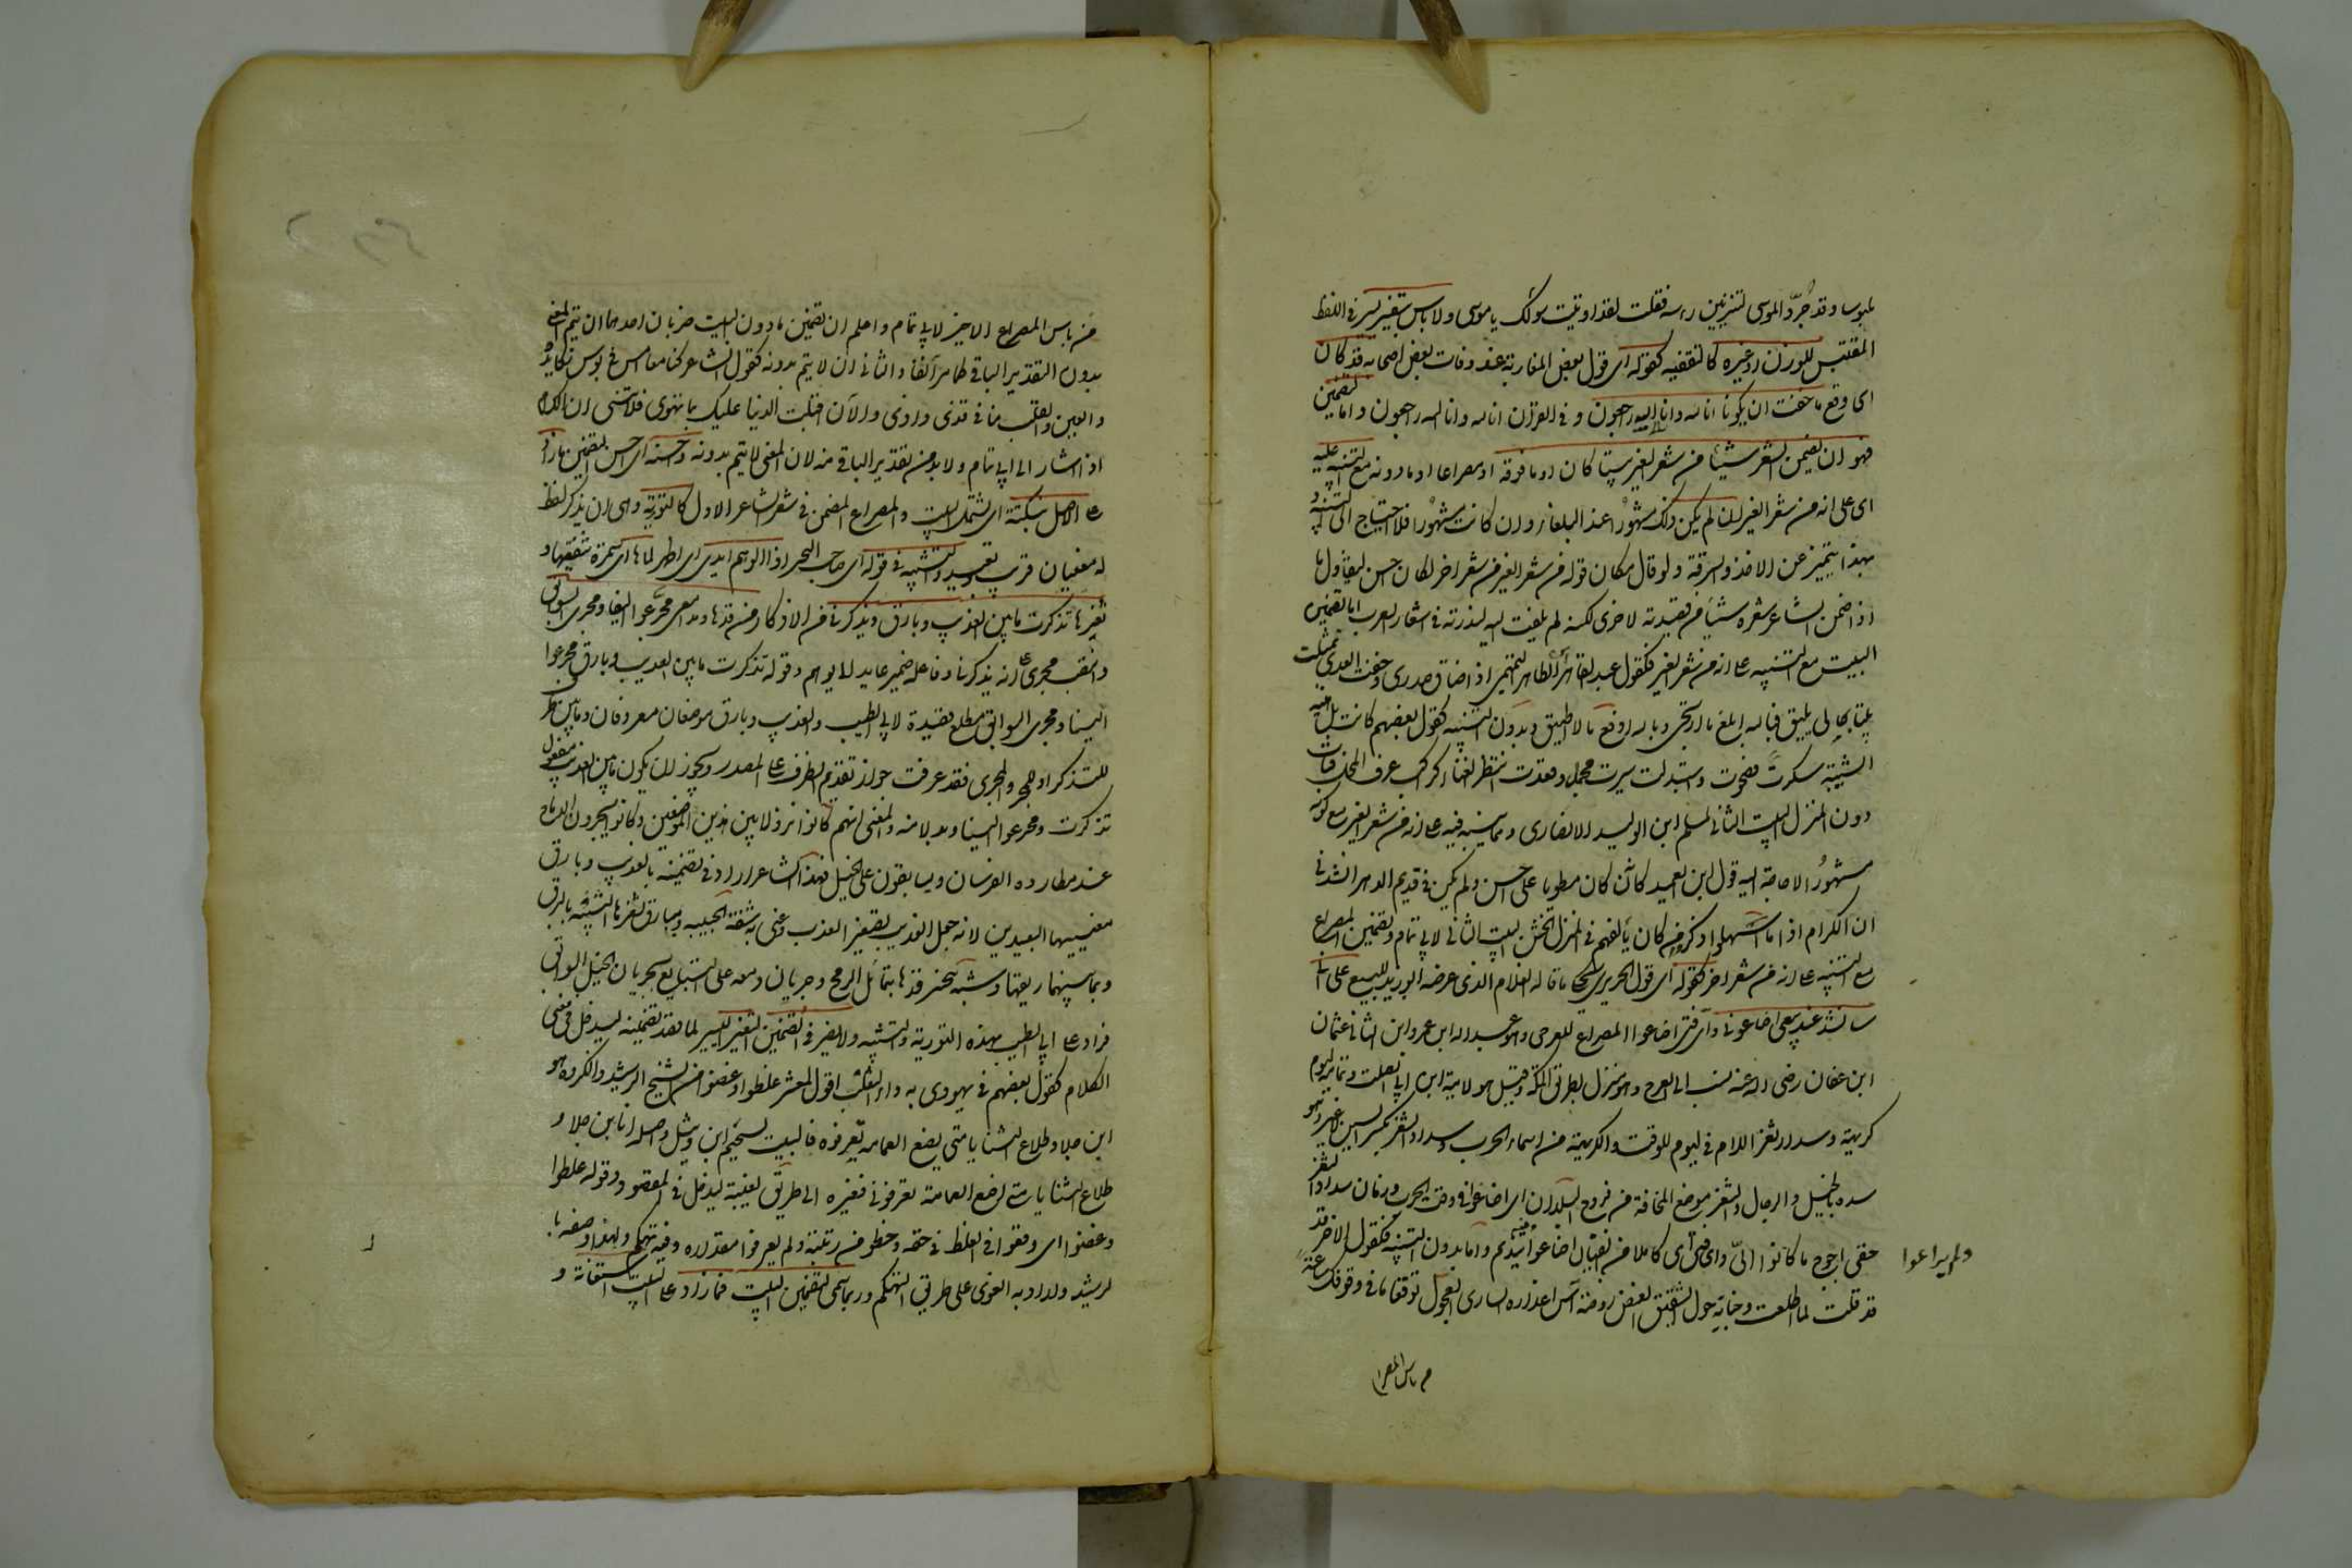 ملبوسا وقد جرد الموسى لتزيين رأسه فقلت لقد اوتيت سؤلك يا موسى ولا باس بتغيير يسير في اللفظ
المقتبس للوزن او غيره كالتقفيه كقوله اى قول بعض المغاربة عند وفات بعض اصحابه قد كان
اى وقع ما خفت ان يكونا انا لله وانا اليه راجعون وفى القرآن انا لله وانا اليه راجعون واما التضمين
فهو ان يضمن الشعر شيئا من شعر الغير بيتا كان او ما فوقه او مصراعا او ما دونه مع التنبيه عليه
اى على انه من شعر الغير ان لم يكن ذلك مشهورا عند البلغاء وان كانت مشهورا فلا احتياج الى التنبيه و
بهذا يتميز عن الاخذ والسرقة ولو قال مكان قوله من شعر الغير من شعر اخر لكان احسن ليتناول ما
اذا ضمن الشاعر شعره شيئا من قصيدته الاخرى لكنه لم يلتفت اليه لندرته فى اشعار العرب اما تضمين
البيت مع التنبيه على انه من شعر الغير فكقول عبد القاهر ابن الطاهر التميمى اذا ضاق صدرى وخفت العدى تمثلت
بيتا بحالى يليق فبالله ابلغ ما ارتجى وبالله ادفع ما لا اطيق وبدون التنبيه كقول بعضهم كانت بلهنية
الشبيبة سكرة فصحوت واستبدلت سيرة مجمل وقعدت انتظر الفناء كراكب عرف المحل فبات
دون المنزل البيت الثانى لمسلم ابن الوليد الانصارى ومما ينبه فيه على انه من شعر الغير مع كونه
مشهورا لا حاجة اليه قول ابن العميد كانه كان مطويا على احن ولم يكن فى قديم الدهر انشدنى
ان الكرام اذا ما اسهلوا ذكروا من كان يألفهم فى المنزل الخشن البيت الثانى لابى تمام وتضمين المصراع
مع التنبيه على انه من شعر اخر كقوله اى قول الحريرى يحكى ما قاله الغلام الذى عرضه ابو زيد للبيع على انى
سانشد عند بيعى اضاعونى واى فتى اضاعوا المصراع للعرجى وهو عبد الله ابن عمرو ابن الثانى عثمان
ابن عفان رضى الله عنه نسب الى العرج وهو منزل بطريق المكة وقيل هو لامية ابن ابى الصلت وتمامه ليوم
كريهة وسداد ثغر اللام فى ليوم للوقت والكريهة من اسماء الحرب وسداد الثغر بكسر السين لا غير وهو
سده بالخيل والرجال والثغر موضع المخافة من فروج البلدان اى اضاعونى فى وقت الحرب وزمان سداد الثغر
ولم يراعوا
حقى احوج ما كانوا الى واى فتى اى كاملا من الفتيان اضاعوا فيه تنديم واما بدون التنبيه فكقول الاخر قد
قد قلت لما اطلعت وجناته حول الشقيق الغض روضة آس اعذاره السارى العجول توقفا ما فى وقوفك ساعة
من باس المصرا
من باس المصراع الاخير لابى تمام واعلم ان تضمين ما دون البيت ضربان احدهما ان يتم المعنى
بدون التقدير الباقى كما مر آنفا والثانى ان لا يتم بدونه كقول الشاعر كنا معا امس فى بؤس نكابده
والعين والقلب منا فى قذى واذى والآن اقبلت الدنيا عليك بما تهوى فلا تنسنى ان الكرام
اذا اشار الى ابى تمام ولا بد من تقدير الباقى منه لان المعنى لا يتم بدونه واحسنه اى احسن التضمين ما زاد
على الاصل بنكتة اى يشتمل البيت والمصراع المضمن فى شعر الشاعر الاول كالتورية واى ان يذكر لفظ
له معنيان قريب وبعيد والتشبيه فى قوله اى صاحب التحبير اذا الوهم ابدى اى اظهر لى لماها اى سمرة شفتيها و
ثغرها تذكرت ما بين العذيب وبارق ويذكرنى من الاذكار من قدها ومدامعى مجر عوالينا ومجرى السوابق
وانتصب مجرى على انه يذكرنا وفاعله ضمير عايد للا يوهم وقوله تذكرت ما بين العذيب وبارق مجر عوا
الينا ومجرى السوابق مطلع قصيدة لابى الطيب والعذيب وبارق موضعان معروفان وما بين ظرف
للتذكر او للمجر والمجرى فقد عرفت جواز تقديم الظرف على المصدر ويجوز ان يكون ما بين العذيب مفعول
تذكرت ومجر عوالينا وبدلا منه والمعنى انهم كانوا نزولا بين هذين الموضعين وكانوا يجرون الرماح
عند مطاردة الفرسان ويسابقون على الخيل فهذا الشاعر اراد فى تضمينه بالعذيب وبارق
معنييهما البعيدين لانه جعل العذيب تصغير العذب وعنى به شفة الحبيبه وببارق ثغرها الشبيه بالبرق
وبما بينهما ريقها وشبه تبختر قدها بتمايل الرمح وجريان دمعه على التتابع بجريان الخيل السوابق
فزاد على ابى الطيب بهذه التورية والتشبيه ولا يضر فى التضمين التغيير اليسير لما قصد تضمينه ليدخل فى معنى
الكلام كقول بعضهم فى يهودى به داء الثعلب اقول لمعشر غلطوا وغضوا من الشيخ الرشيد وانكروه هو
ابن جلا وطلاع الثنايا متى يضع العمامة تعرفوه فالبيت لسحيم ابن وثيل واصله انا ابن جلا و
طلاع الثنايا متى اضع العمامة تعرفونى فغيره الى طريق الغيبة ليدخل فى المقصود وقوله غلطوا
وغضوا اى وقعوا فى الغلط فى حقه وحطو من رتبته ولم يعرفوا مقداره وفيه تهكم ولهذا وصفه با
لرشيد واراد به الغوى على طريق التهكم وربما سمى تضمين البيت فما زاد على البيت استعانة و